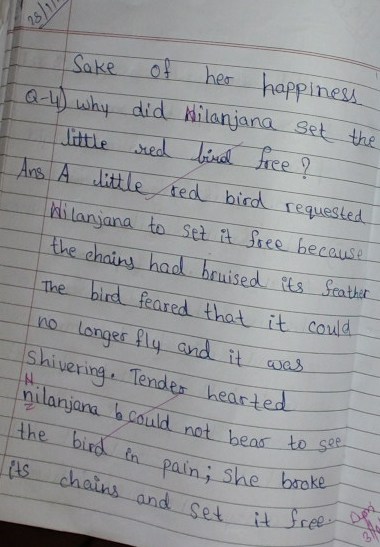 Sake of her happiness
Q-4) Why did Nilanjana set the
little red bird free?
Ans A little red bird requested
Nilanjana to set it free because
the chains had bruised its feather
The bird feared that it could
no longer fly and it was
shivering. Tender hearted
Nilanjana could not bear to see
the bird in pain; she broke
its chains and set it free.